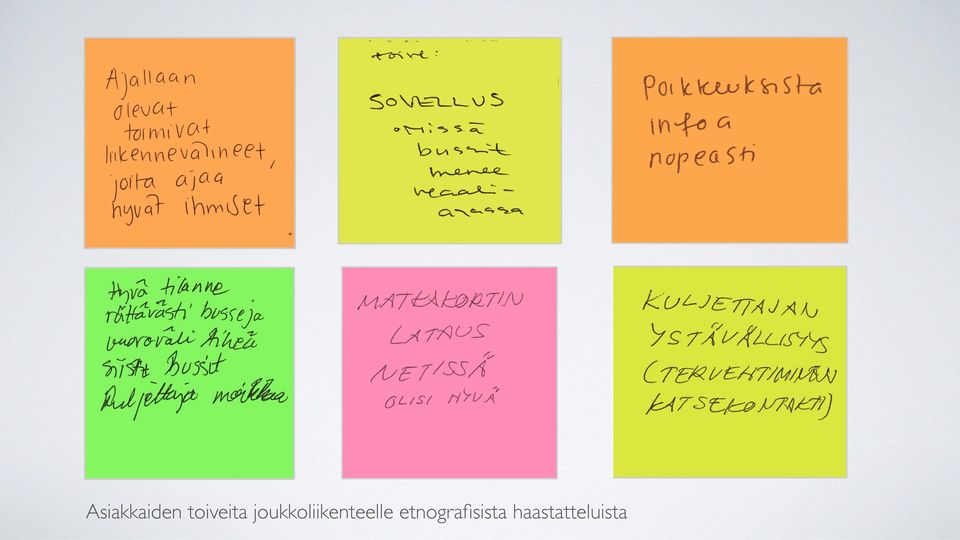 Ajallaan
olevat
toimivat
liikennevälineet,
joita ajaa
hyvät ihmiset
toive:
SOVELLUS
• Missä
bussit
menee
reaali-
ajassa
Poikkeuksista
infoa
nopeasti
Hyvä tilanne
riittävästi busseja
vuoroväli tiheä
siistit bussit
Kuljettaja moikkaa
MATKAKORTIN
LATAUS
NETISSÄ
OLISI HYVÄ
KULJETTAJAN
YSTÄVÄLLISYYS
(TERVEHTIMINEN
KATSEKONTAKTI)
Asiakkaiden toiveita joukkoliikenteelle etnografisista haastatteluista